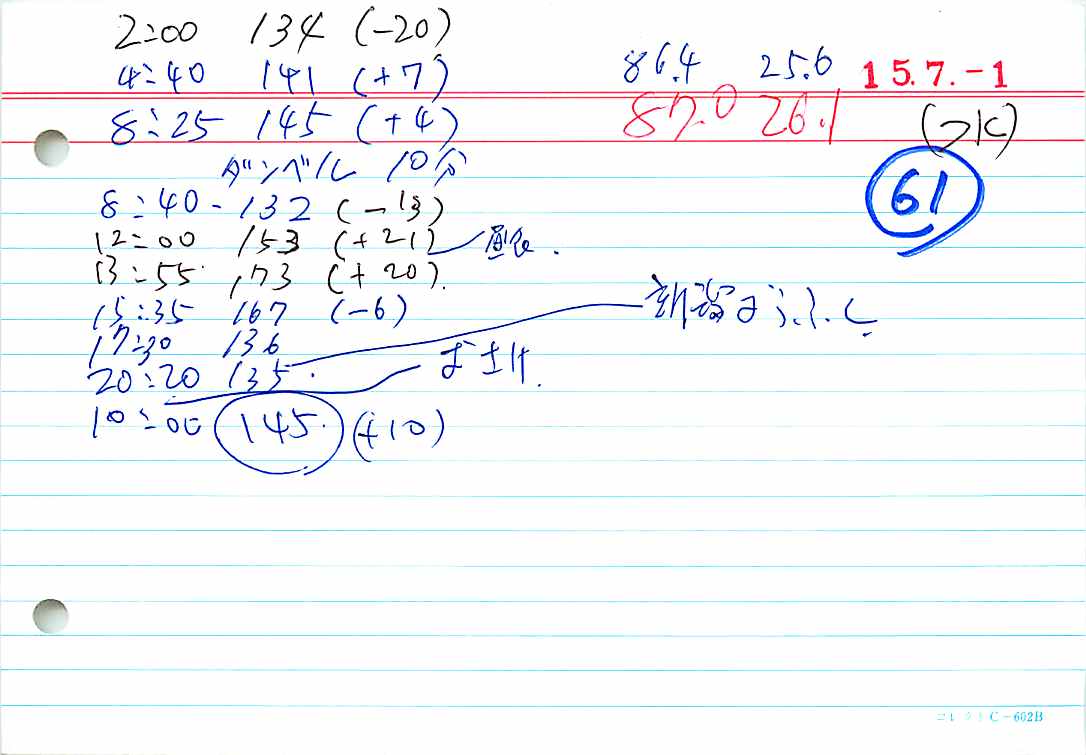 2:00 134 (-20)
4:40 141 (+7)
86.4 25.6 15.7.-1
8:25 145 (+4)
87.0 26.1
(水)
ダンベル 10分
61
8:40 - 132 (-13)
12:00 153 (+21) 昼食.
13:55 173 (+20).
15:35 167 (-6)
17:30 136
20:20 135.
10:00 145. (+10)
C-602B